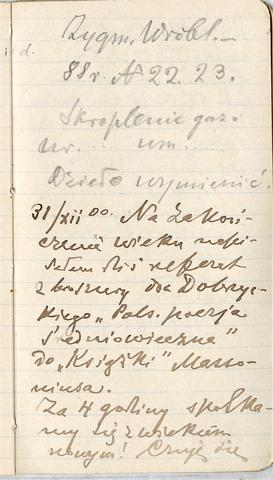 d.
Zygm. Wróbl.—
88 r. № 22. 23.
Skroplenie gazo
nr. ... um. ...
Dzieło wymienić.
31/xii 00. Na zakoń-
czenie wieku napi-
sałem dziś referat
z broszury dra Dobrzyc-
kiego „Pols. poezja
średniowieczna”
do „Książki” Masso-
niusa.
Za 4 godziny spotka-
my się z wiekiem
nowym! Czuję się